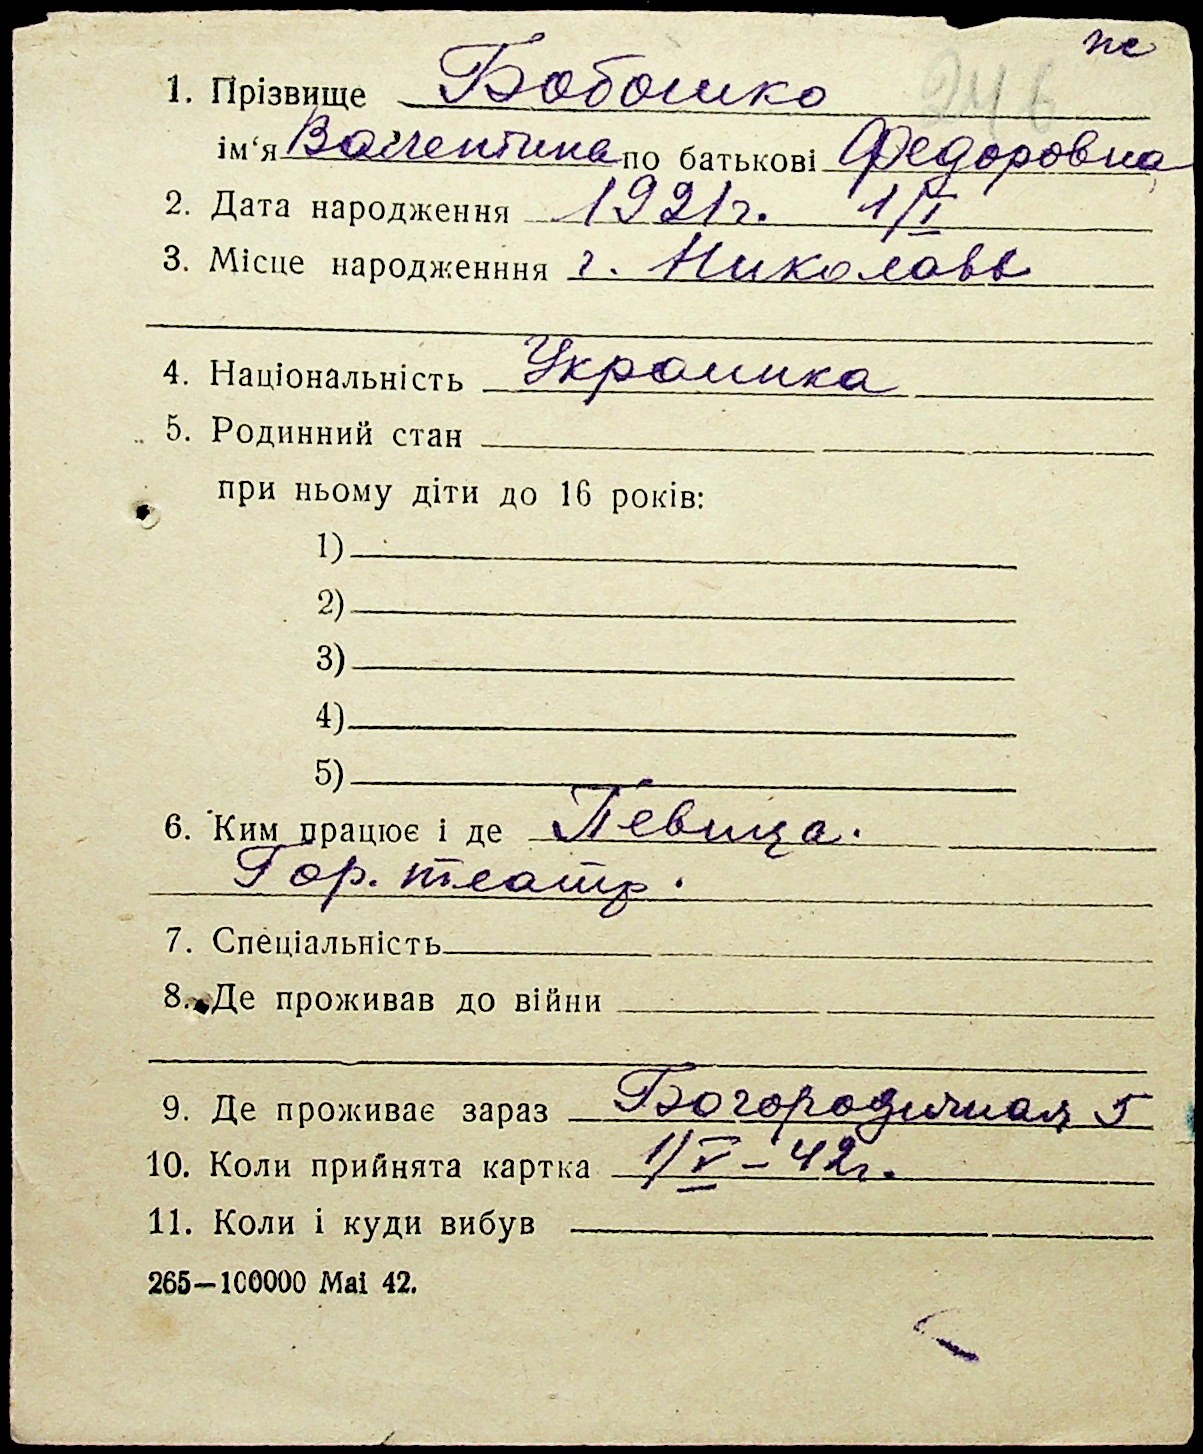 пс
1. Прізвище Бабашко 246
ім‘я Валентина по батькові Федоровна
2. Дата народження 1921 г. 1/I
3. Місце народженння г. Николаев
4. Національність Украинка
5. Родинний стан
при ньому діти до 16 років:
1)
2)
3)
4)
5)
6. Ким працює і де Певица.
Гор. театр.
7. Спеціальність
8. Де проживав до війни
9. Де проживає зараз Богородичная 5
10. Коли прийнята картка 1/V – 42 г.
11. Коли і куди вибув
265—100000 Mai 42.